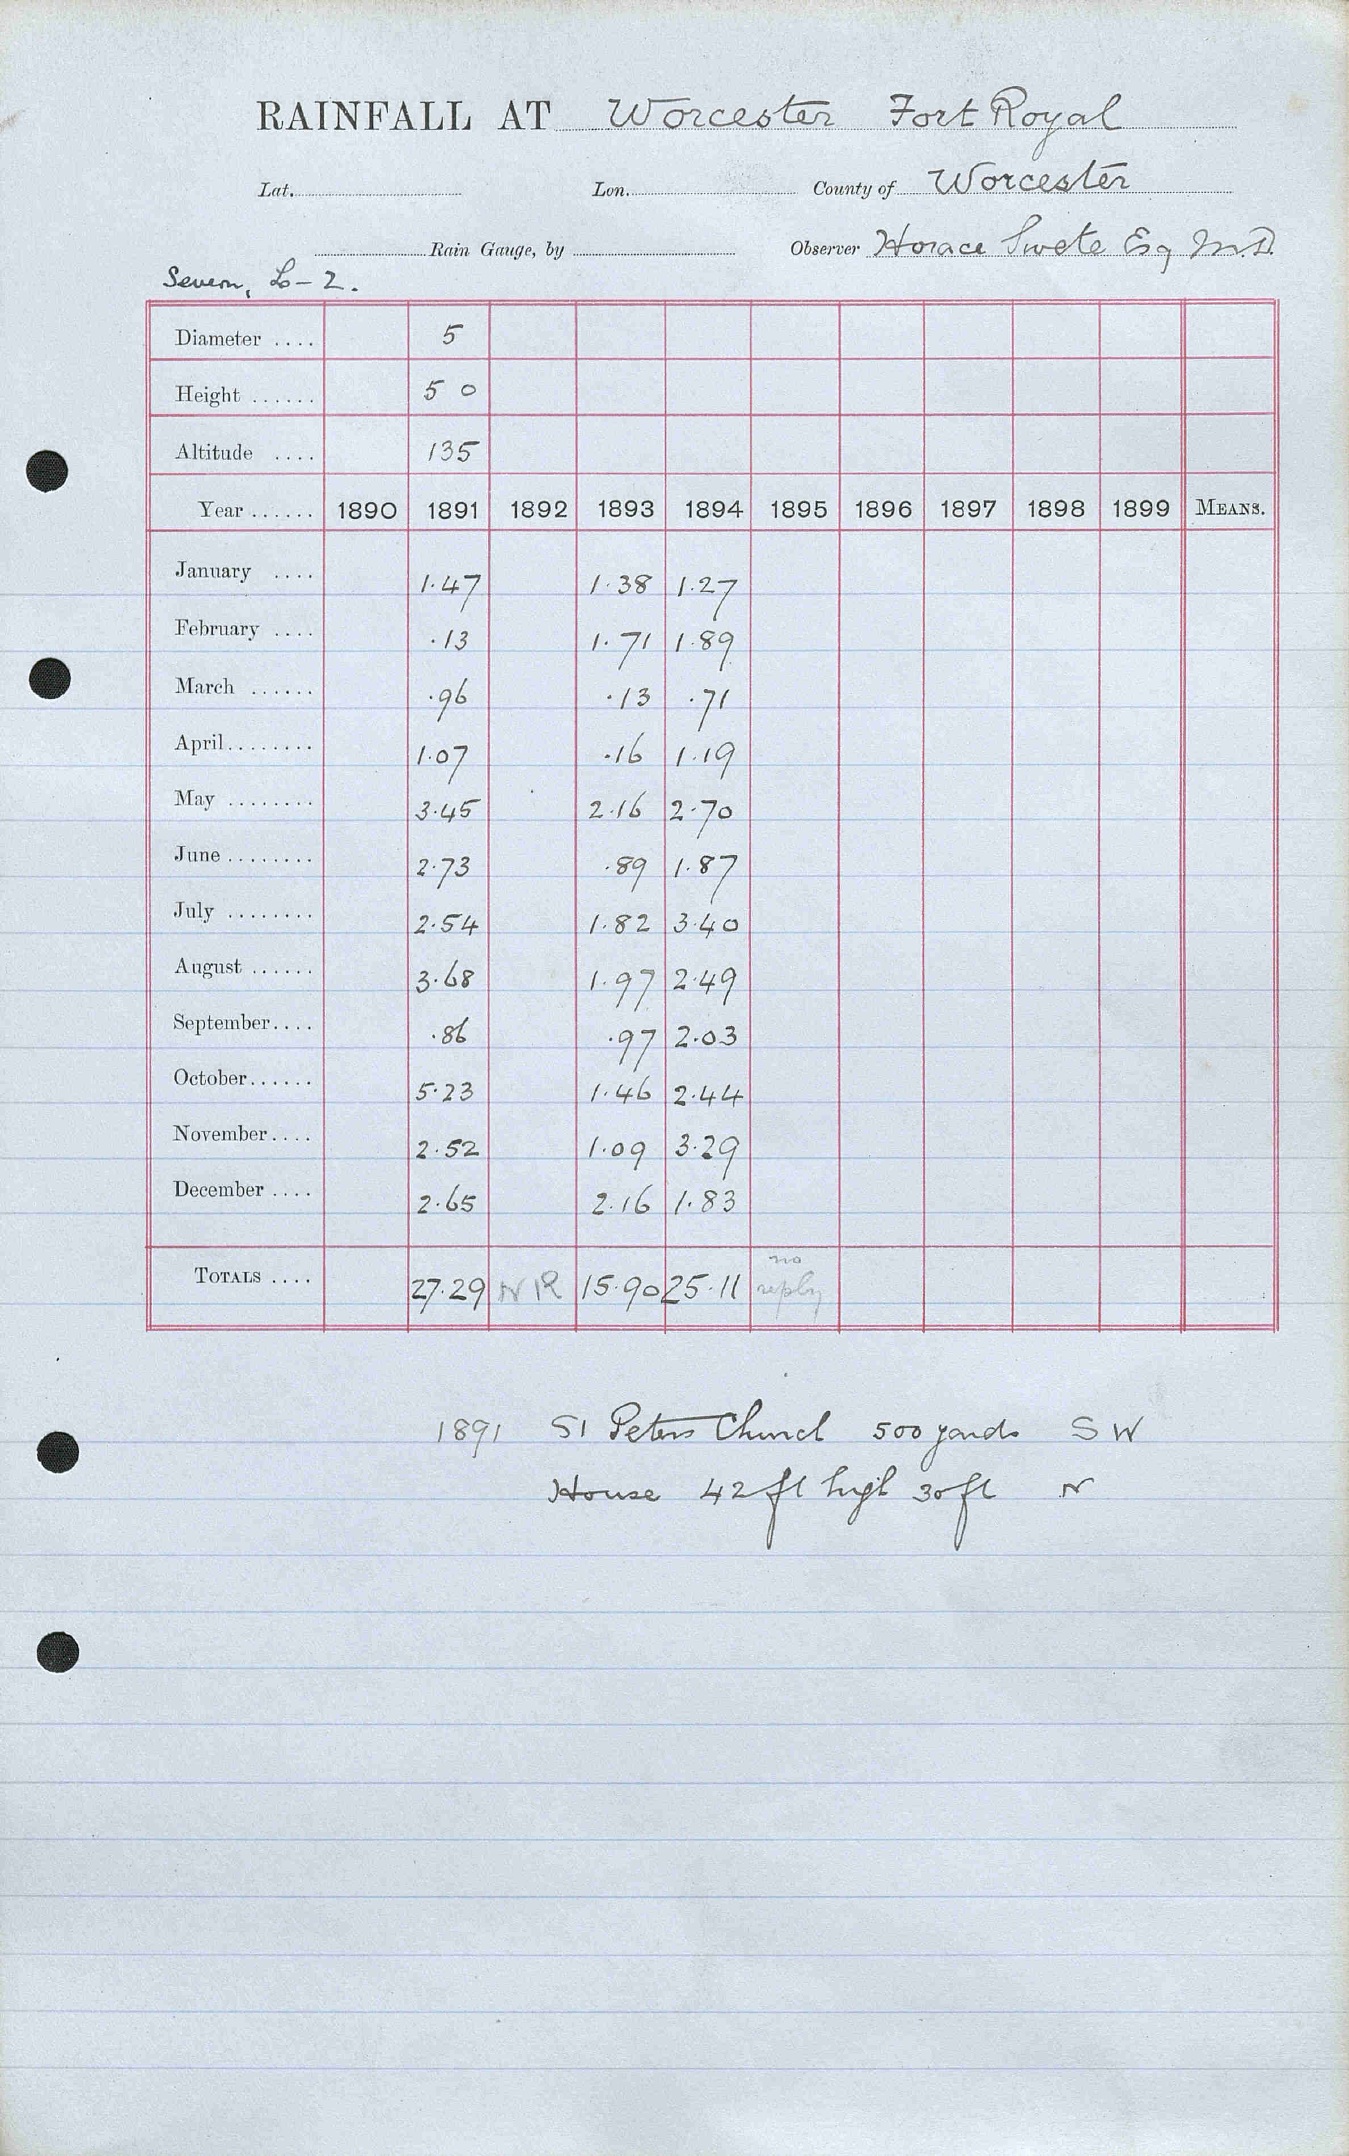 RAINFALL AT Worcester Fort Royal
Lat. Lon. County of Worcester
Rain Gauge, by Observer Horace Swete Esq M.D.
Severn, L-2.
Diameter .... 5
Height ...... 5 0
Altitude .... 135
Year ...... 1890 1891 1892 1893 1894 1895 1896 1897 1898 1899 MEANS.
January .... 1.47 1.38 1.27
February .... .13 1.71 1.89
March ...... .96 .13 .71
April........ 1.07 .16 1.19
May ........ 3.45 2.16 2.70
June ........ 2.73 .89 1.87
July ........ 2.54 1.82 3.40
August ...... 3.68 1.97 2.49
September.... .86 .97 2.03
October...... 5.23 1.46 2.44
November.... 2.52 1.09 3.29
December .... 2.65 2.16 1.83
TOTALS .... 27.29 N R 15.90 25.11 no reply
1891 St Peters Church 500 yards S W
House 42 ft high 30 ft N